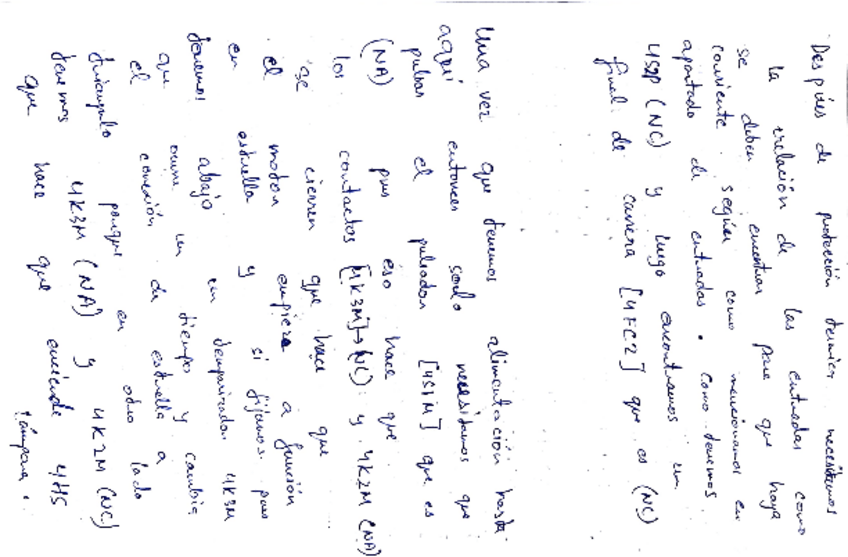 Después de protección térmica necesitamos
la relación de las entradas como
se deben encontrar para que haya
corriente según como mencionamos en
apartado de entradas. como tenemos
4S2P (NC) y luego encontramos un
final de carrera [4FC2] que es (NC)
Una vez que tenemos alimentación hasta
aquí entonces solo necesitamos que
pulsar el pulsador [4S1M] que es
(NA) pues eso hace que
los contactos [4K3M]→(NC) y 4K2M (NA)
se cierren que hace que
el motor empieza a función
en estrella y si fijamos pues
tenemos abajo un temporizador 4K3M
que ocurre un tiempo y cambia
el conexión de estrella a
triángulo porque en otro lado
tenemos 4K3M (NA) y 4K2M (NC)
que hace que enciende 4H5
lámpara.